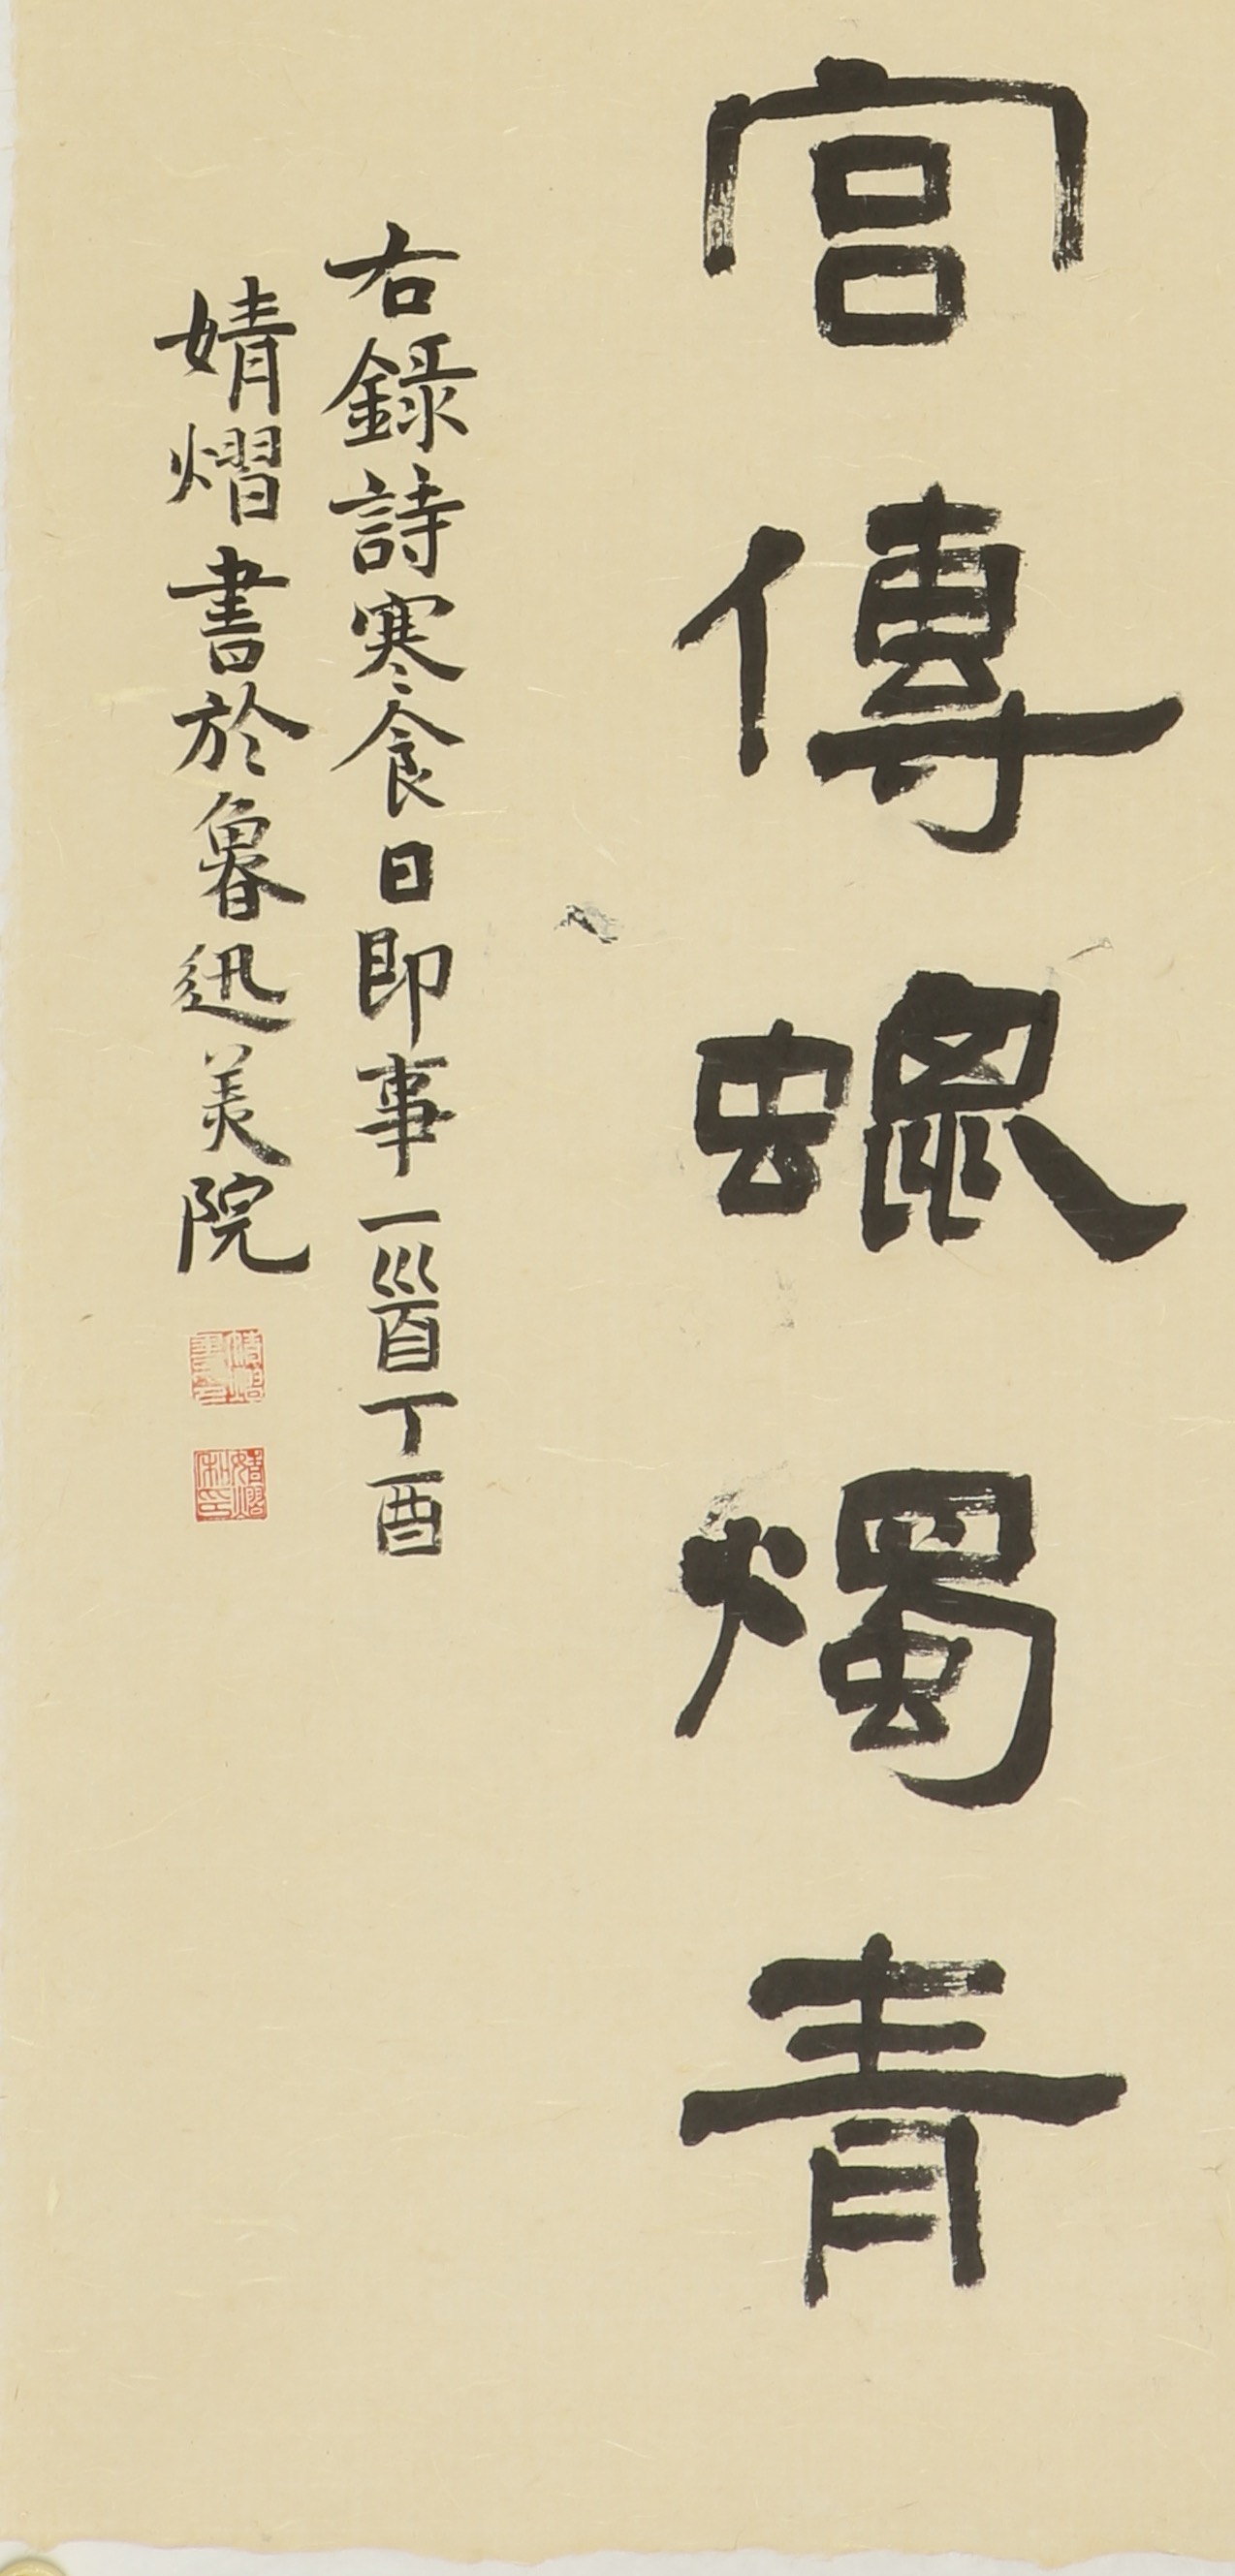 宫傳蠟燭青
右錄詩寒食日即事一首丁酉
婧熠書於魯迅美院
婧熠私印